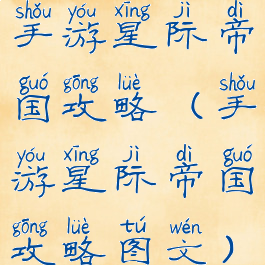 shǒu yóu xīng jì dì
手游星际帝
guó gōng lüè shǒu
国攻略（手
yóu xīng jì dì guó
游星际帝国
gōng lüè tú wén
攻略图文）